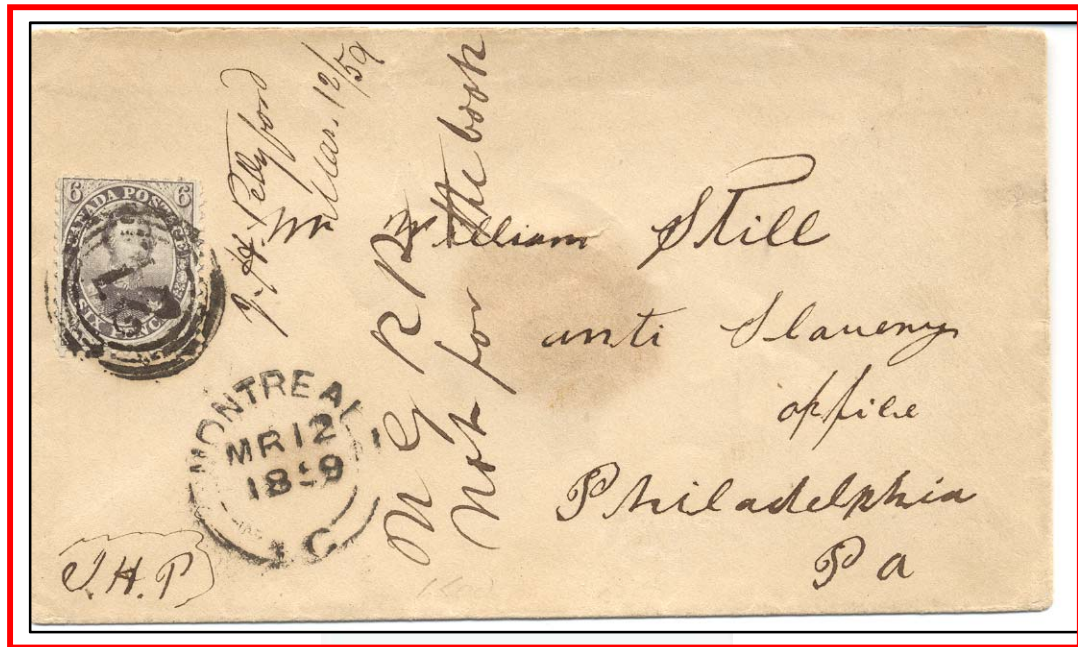 6 6
CANADA POSTAGE
SIX PENCE
J. H. Pettyford
Mar. 12/59
N G R R
Not for the book
Mr William Still
anti Slavery
office
Philadelphia
Pa
MONTREAL
MR 12
1859
L C
J. H. P